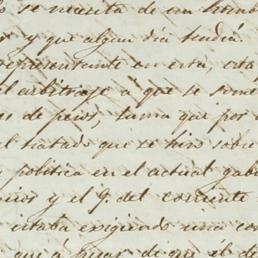 se necesita de un hom
y que algun dia tendrá
representante en esta, esta
el arbitraje a que se some
es de pesos, suma que por
el tratado que se hizo sobre
politica en el actual gab
y el 9. del corriente
estaba exigiendo una con
que á pesar de que el de